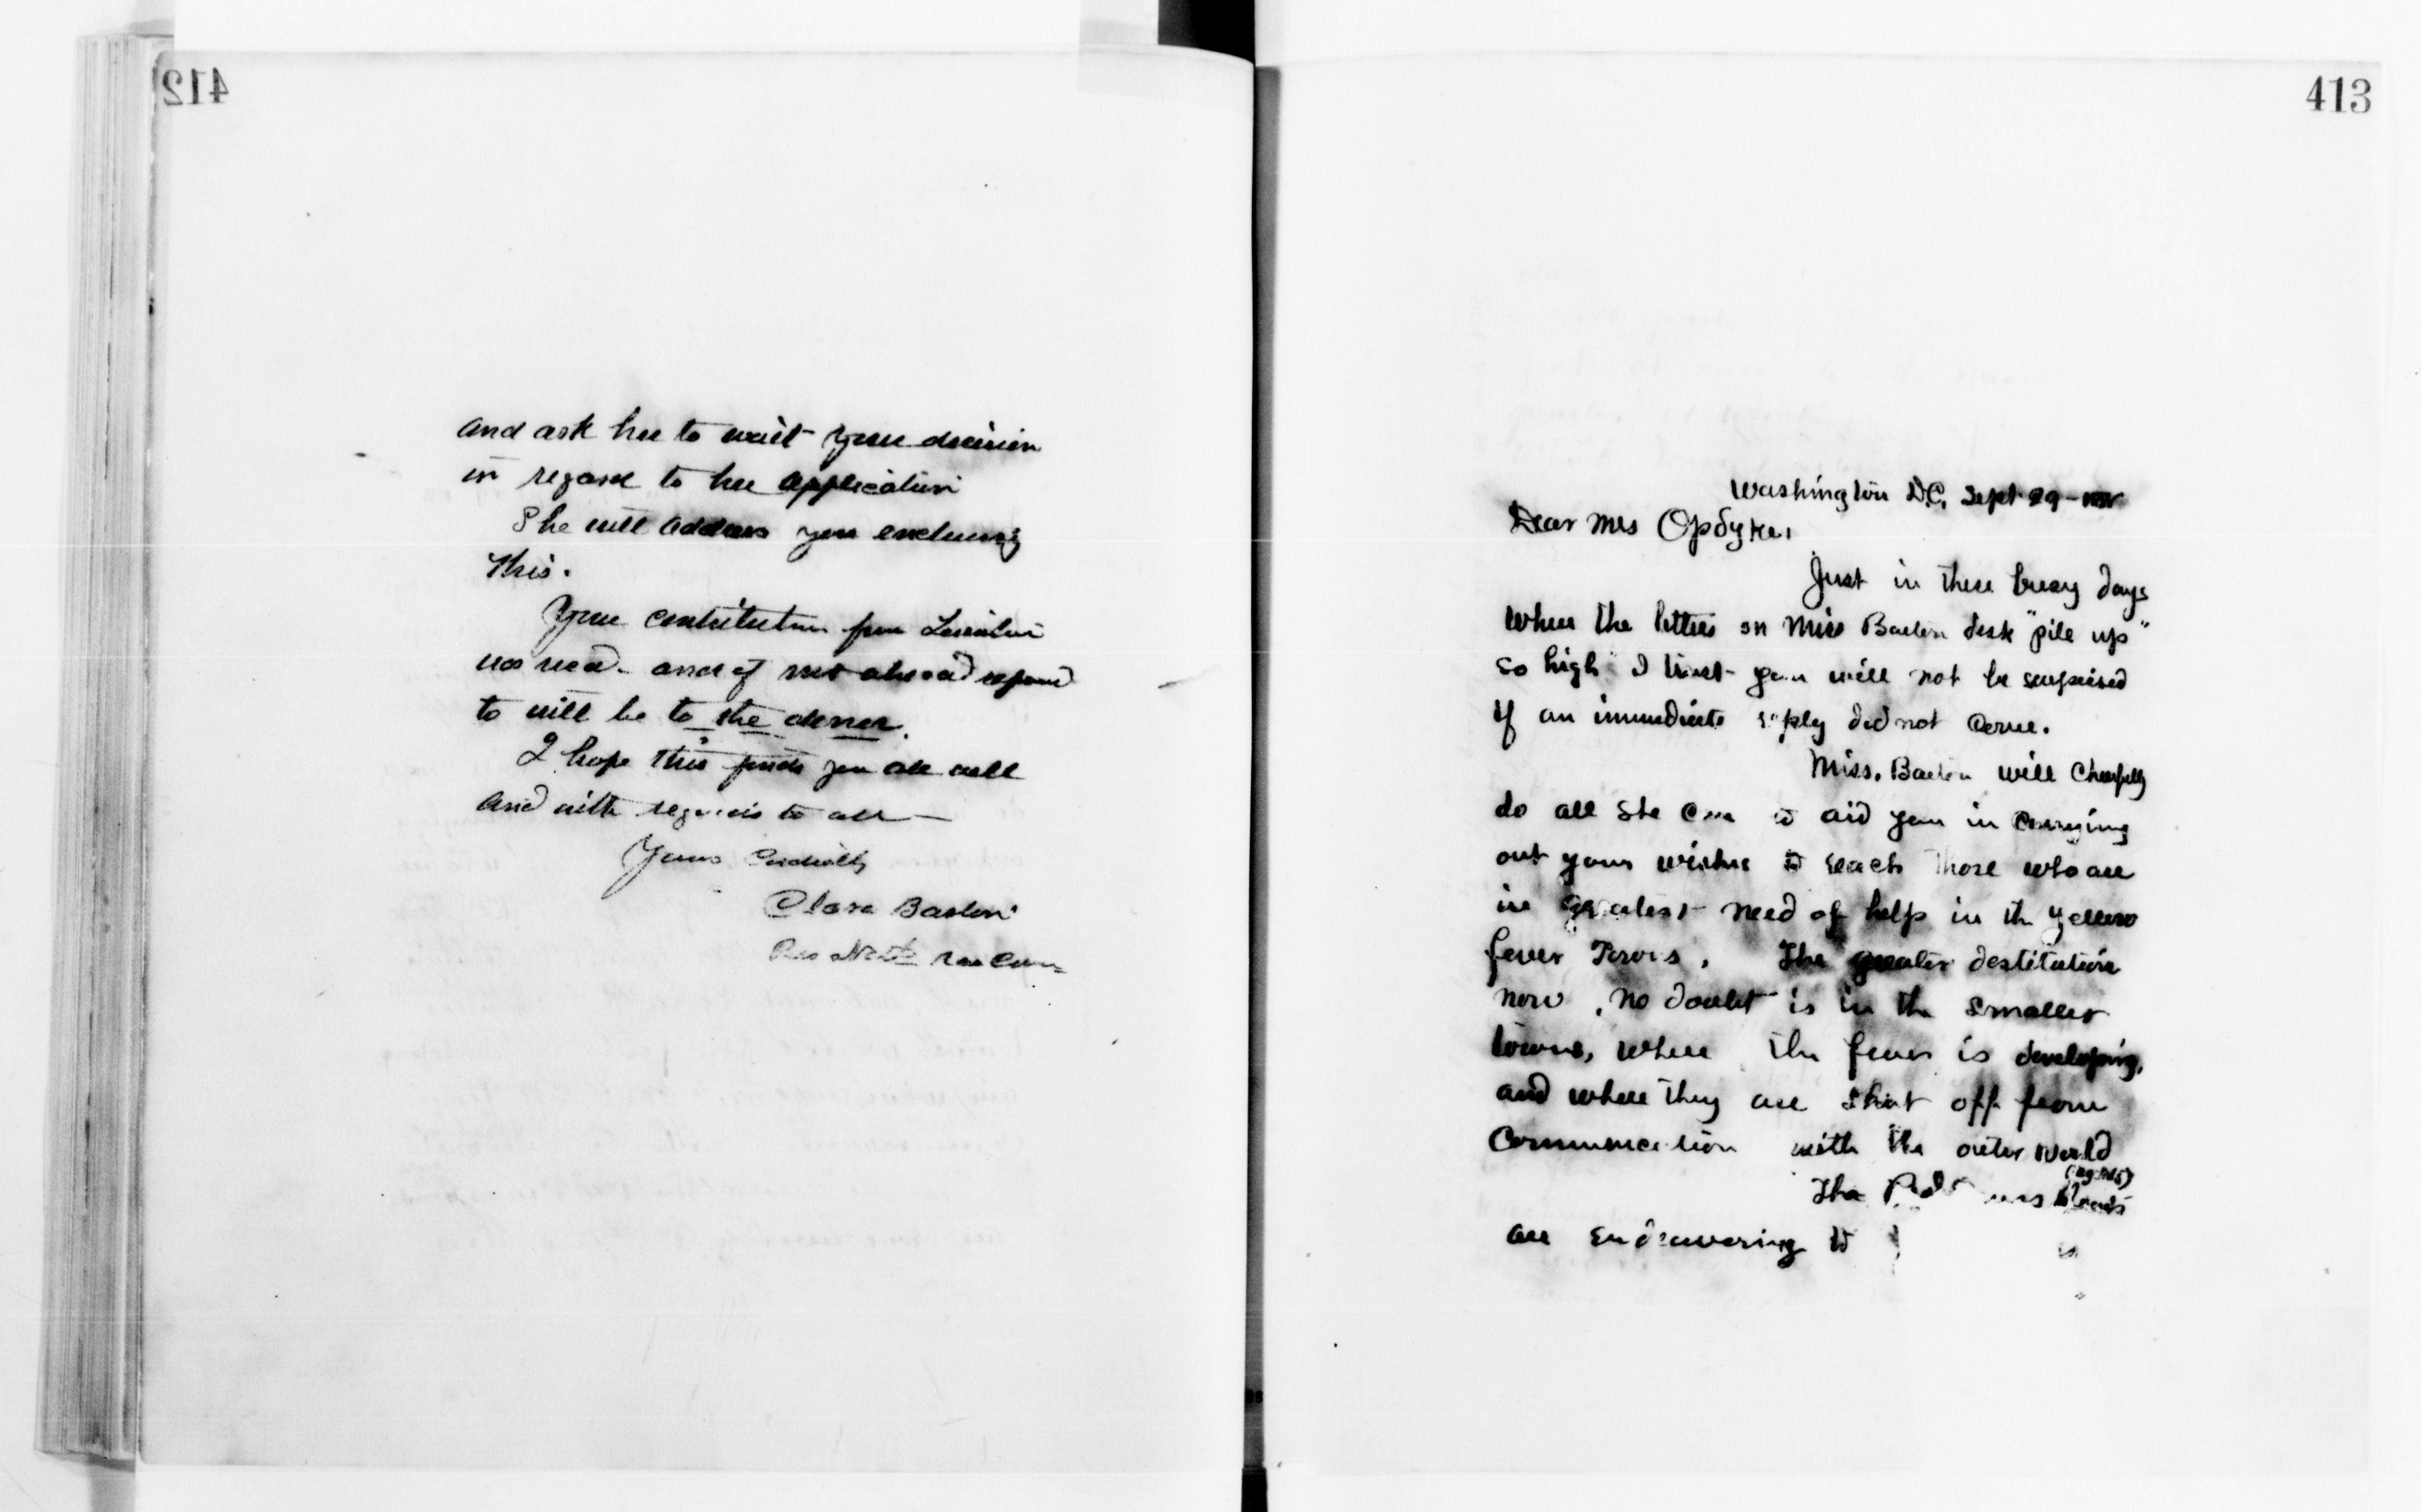 412
and ask her to wait your decision
in regard to her application
She will address you enclosing
this.
Your contribution from
was recd. and if not already
to will be to the donor.
I hope this finds you all well
and with regards to all —
Yours Cordially
Clara Barton
413
Washington D.C. Sept 29 -
Dear Mrs Opdyke,
Just in these busy days
when the letters on Miss Barton desk "pile up"
so high I trust you will not be surprised
if an immediate reply did not come.
Miss. Barton will Cheerfully
do all she can to aid you in Carrying
out your wishes to reach those who are
in greatest need of help in the yellow
fever Towns. The greater destitution
now, no doubt is in the smaller
towns, where the fever is developing,
and where they are shut off from
Communication with the outer world
(agents)
The Red
are endeavering to